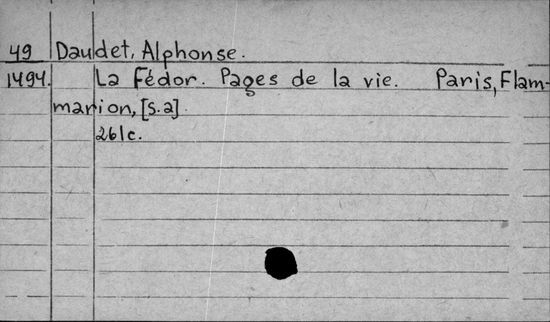 49 Daudet, Alphonse.
1494. La Fédor. Pages de la vie. Paris, Flam-
marion, [s.a].
261c.